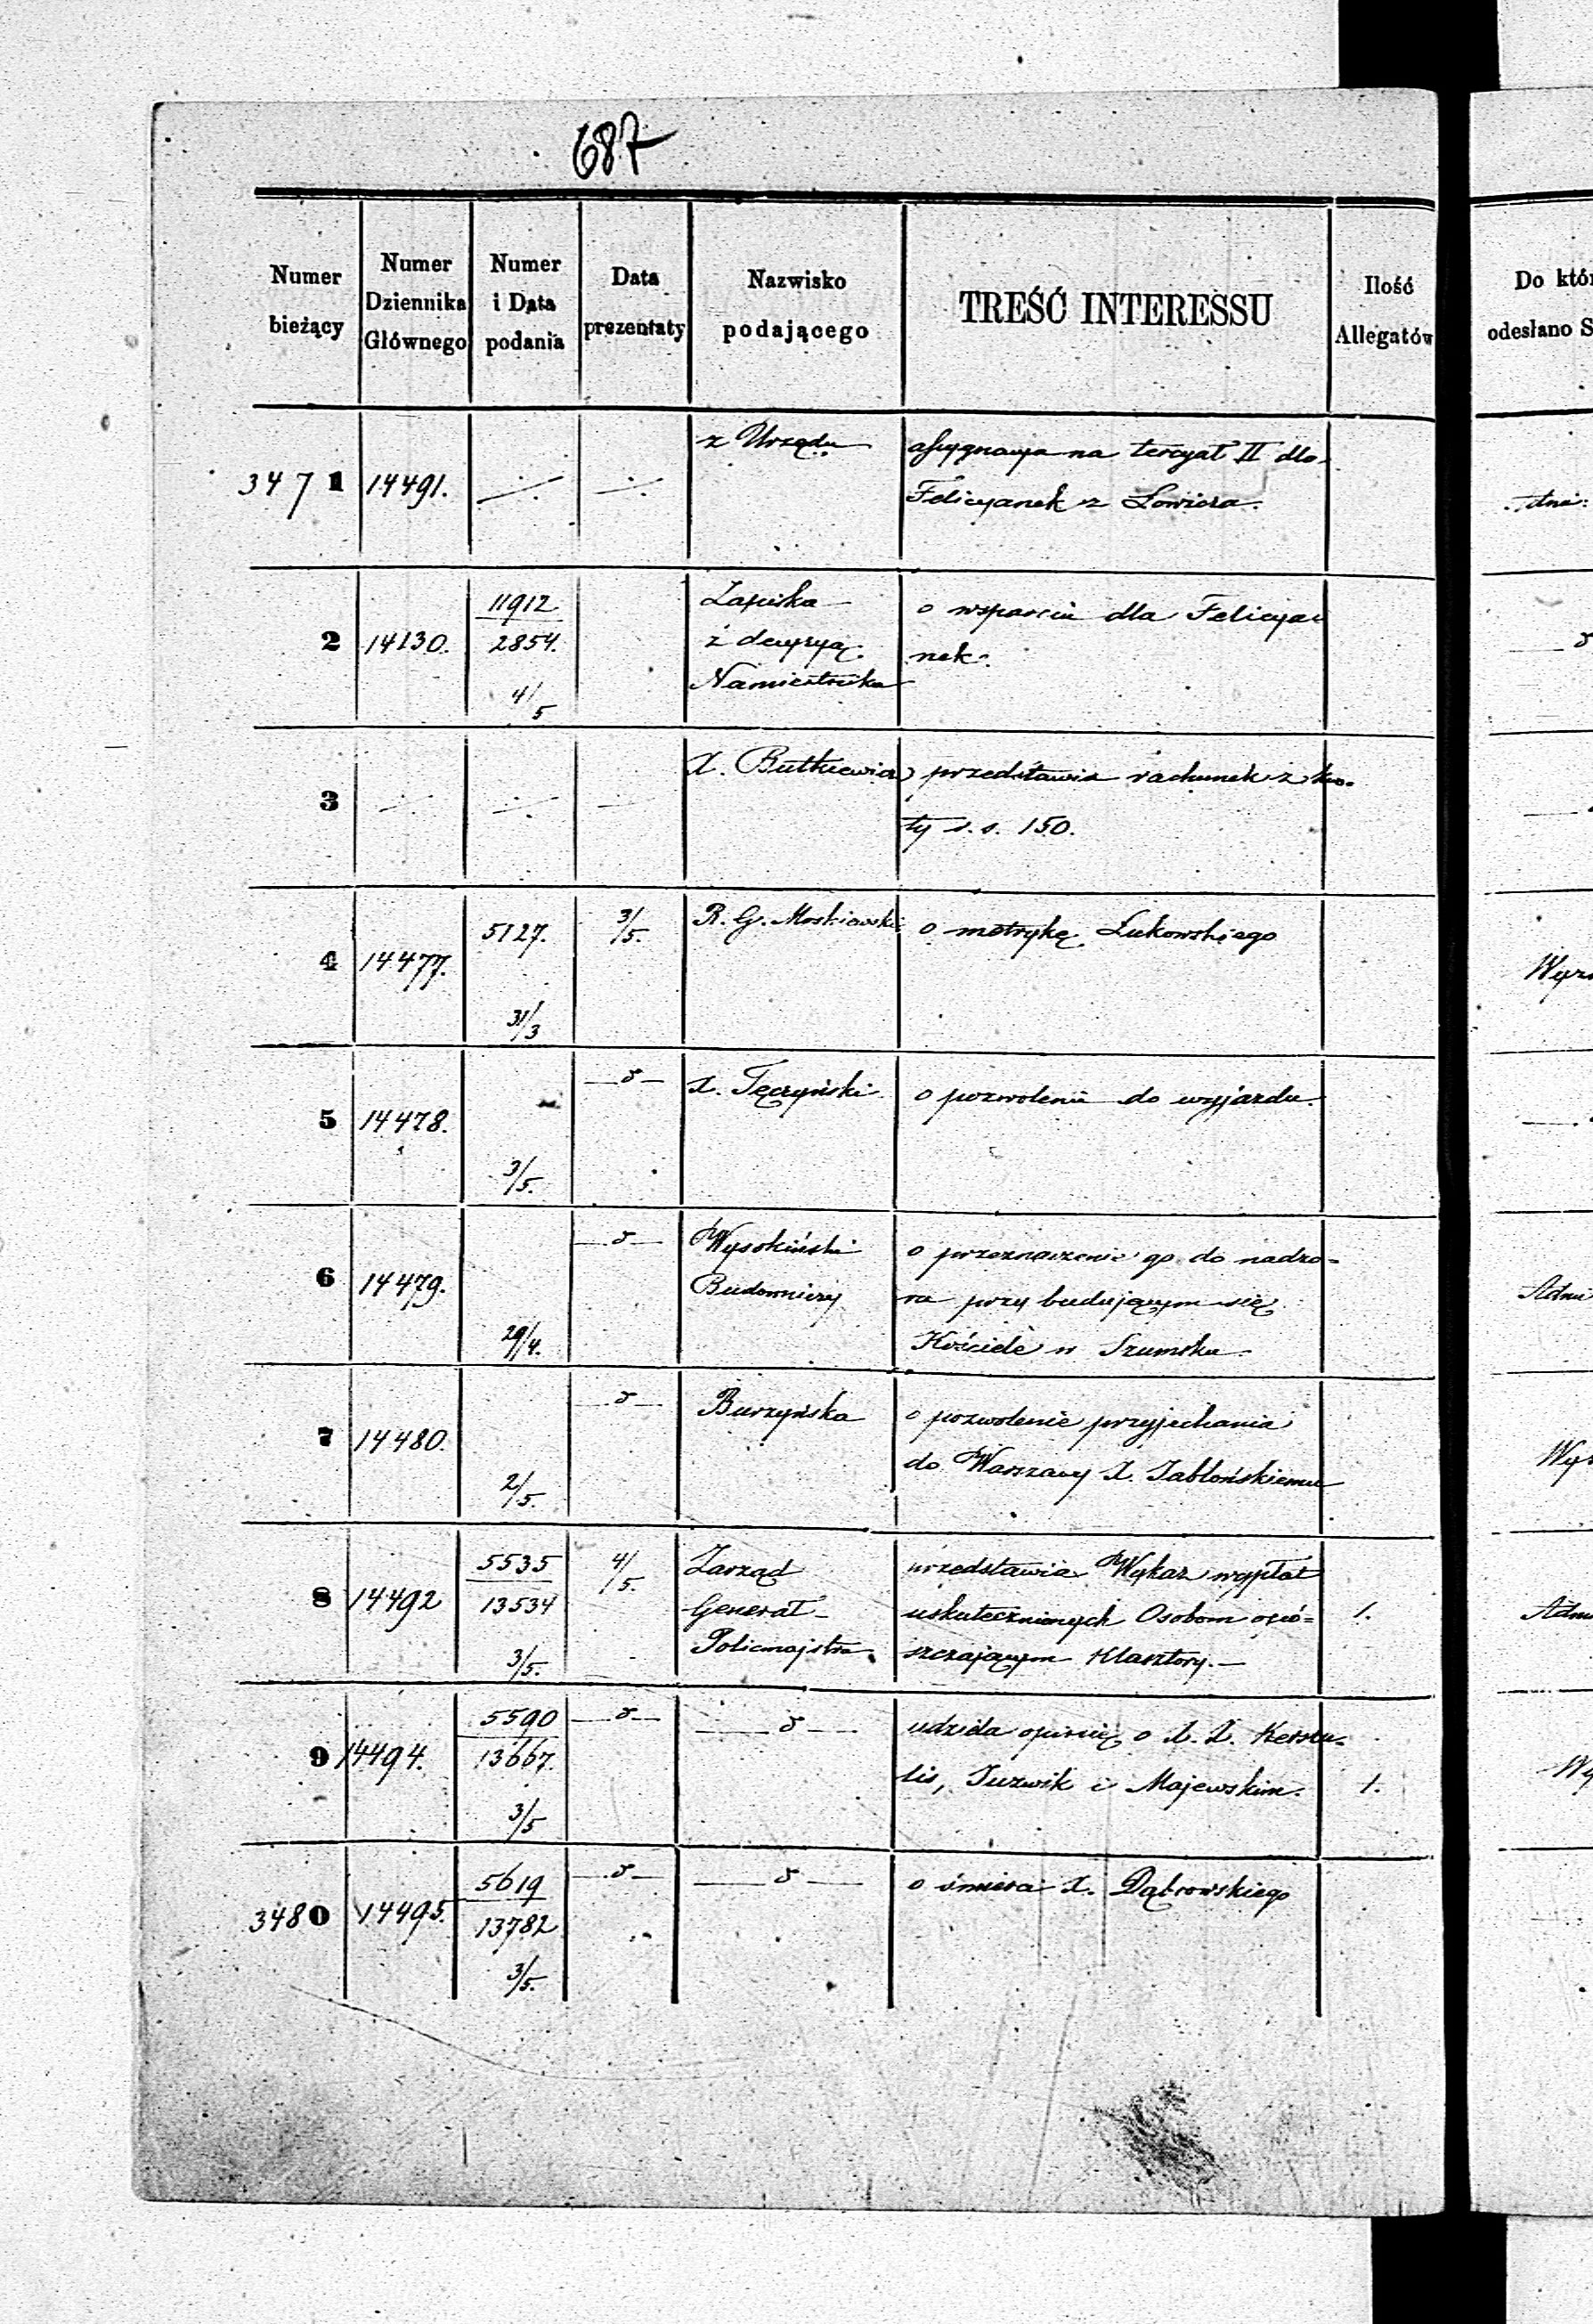 687
Numer bieżący
Numer Dziennika Głównego
Numer i Data podania
Data prezentaty
Nazwisko podającego
TREŚĆ INTERESSU
Ilość Allegatów
Do któr
odesłano S
3471 14491. z Urzędu assygnacya na tercyał II dla
Felicyanek z Łowicza.
2 14130. 11912 2854. 4/5 Zapiska o wsparciu dla Felicya
z decyzyą nek.
Namiestnika
3 X. Butkiewicz przedstawia rachunek z kwo-
ty r. s. 150.
4 14477. 5127. 31/3 3/5. R. G. Moskiewski o metrykę Łukowskiego
5 14478. 3/5. X. Tęczyński o pozwolenie do wyjazdu.
6 14479. 29/4. Wysokiński o przeznaczenie go do nadzo-
Budowniczy ru przy budującym się
Kościele w Szumsku.
7 14480. 2/5. Burzyńska o pozwolenie przyjechania
do Warszawy X. Jabłońskiemu
8 14492 5535 13534 3/5. 4/5. Zarząd przedstawia Wykaz wypłat
Generał- uskutecznionych Osobom opó= 1.
Policmajstra szczającym Klasztory.—
9 14494. 5590 13667. 3/5 udziela opinię o X. X.
lis, Juzwik i Majewskim. 1.
3480 14495. 5619 13782 3/5. o śmierci X. Dąbrowskiego